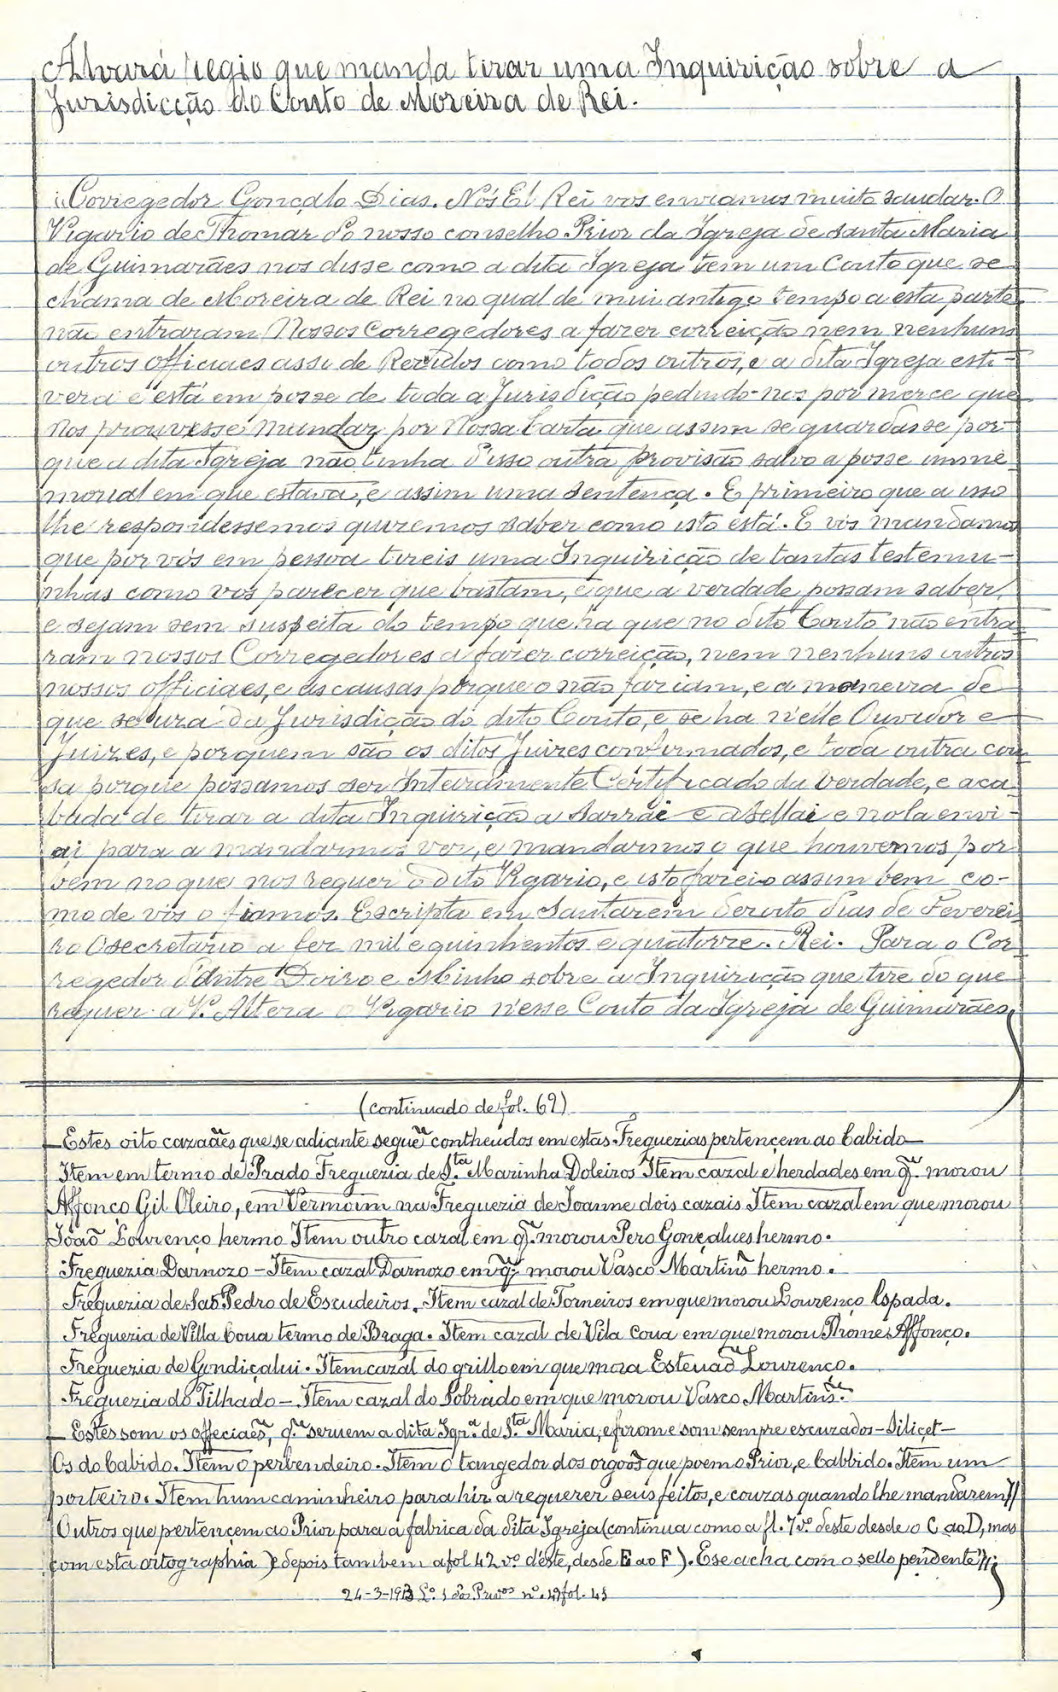 Alvará regio que manda tirar uma Inquirição sobre a
Jurisdicção do Couto de Moreira de Rei.
Corregedor Gonçalo Dias. Nós El Rei vos enviamos muito saudar. O
Vigario de Thomar do nosso conselho Prior da Igreja de Santa Maria
de Guimarães nos disse como a dita Igreja tem um Couto que se
chama de Moreira de Rei no qual de mui antigo tempo a esta parte
não entraram Nossos Corregedores a fazer correição nem nenhuns
outros officiaes assi de Residos como todos outros, e a dita Igreja esti-
vera e está em posse de toda a Jurisdicção pedindo-nos por merce que
Nos prouvesse mandar por Nossa Carta que assim se guardasse por-
que a dita Igreja não tinha disso outra provisão salvo a posse imme-
morial em que estava, e assim uma sentença. E primeiro que a isso
lhe respondessemos queremos saber como isto está. E vos mandamos
que por vós em pessoa tireis uma Inquirição de tantas testemu-
nhas como vos parecer que bastam, e que a verdade possam saber,
e sejam sem suspeita do tempo que ha que no dito Couto não entra-
ram nossos Corregedores a fazer correição, nem nenhuns outros
nossos officiaes, e as causas porque o não faziam, e a maneira de
que se usa da Jurisdição do dito Couto, e se ha n'elle Ouvidor e
Juizes, e por quem são os ditos Juizes confirmados, e toda outra cou-
sa porque possamos ser Inteiramente Certificado da Verdade, e aca-
bada de tirar a dita Inquirição a sarrai e asellai e nola envi-
ai para a mandarmos ver, e mandarmos o que houvemos por
bem no que nos requer o dito Vigario, e isto fareis assim bem co-
mo de vós o fiamos. Escripta em Santarem dezoito dias de Feverei-
ro O secretario a fez mil e quinhentos e quatorze. Rei. Para o Cor-
regedor d'Antre Doiro e Minho sobre a Inquirição que tire do que
requer a V. Alteza o Vigario n'esse Couto da Igreja de Guimarães
(continuado de fol. 69)
Estes oito cazaães que se adiante seguē contheudos em estas Freguezias pertençem ao Cabido
Item em termo de Prado Freguezia de Sta. Marinha Doleiros Item cazal e herdades em q. morou
Affonco Gil Oleiro, em Vermoim na Freguezia de Joanne dois cazais Item cazal em que morou
João Lourenço hermo Item outro cazal em q. morou Pero Gonçalues hermo.
Freguezia Darnozo - Item cazal Darnozo em q. morou Vasco Martins hermo.
Freguezia de Sam Pedro de Escudeiros. Item cazal de Torneiros em que morou Lourenço Espada.
Freguezia de Villa Coua termo de Braga. Item cazal de Vila Coua em que morou Thomes Affonço.
Freguezia de Gondiçalui. Item cazal do grillo em que mora Esteuaõ Lourenco.
Freguezia do Tilhado - Item cazal do Sobrado em que morou Vasco Martins.
Estes som os offeciaes, q. seruem a dita Igra. de Sta Maria, e forom e som sempre escuzados - Silicet -
Os do Cabido. Item o perbendeiro. Item o tangedor dos orgoos que poem o Prior, e Cabbido. Item um
porteiro. Item hum caminheiro para hir a requerer seus feitos, e couzas quando lhe mandarem //
Outros que pertencem ao Prior para a fabrica da dita Igreja (continua como a fl. 7 vo. deste desde o C ao D, mas
com esta ortographia) e depois tambem a fol 42 vo. d'este, desde E ao F). E se acha com o sello pendente //;
24-3-1913 Lo. 1 dos Privos no. 49 fol. 43